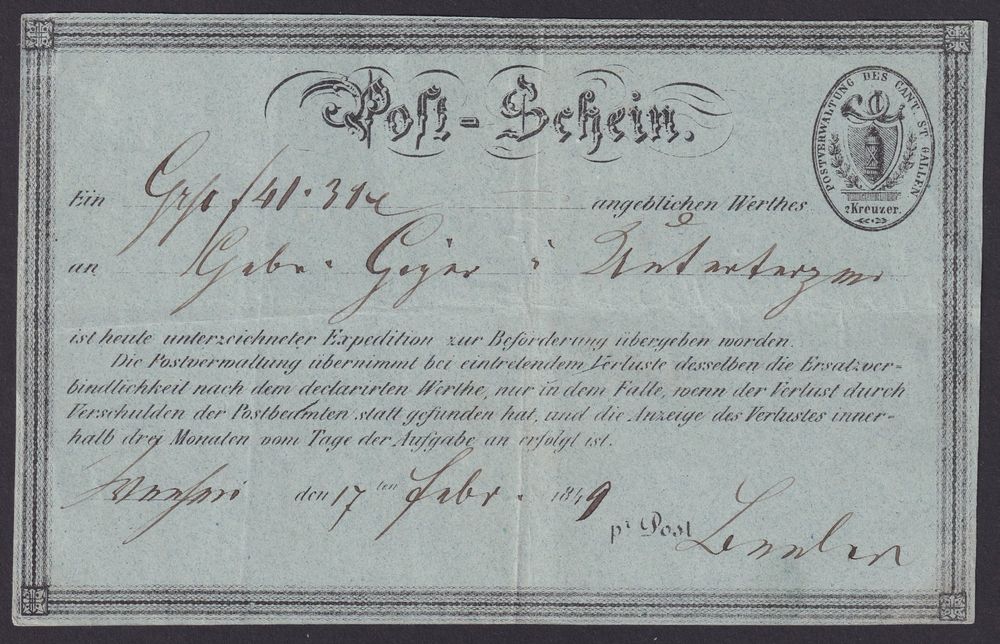 Post-Schein.
POSTVERWALTUNG DES CANT ST GALLEN
2 Kreuzer.
Ein Grp f 41. 31 x angeblichen Werthes
an Gebr. Geger i Unterterzen
ist heute unterzeichneter Expedition zur Beförderung übergeben worden.
Die Postverwaltung übernimmt bei eintretendem Verluste desselben die Ersatzver-
bindlichkeit nach dem declarirten Werthe, nur in dem Falle, wenn der Verlust durch
Verschulden der Postbeamten statt gefunden hat, und die Anzeige des Verlustes inner-
halb drei Monaten vom Tage der Aufgabe an erfolgt ist.
den 17ten Febr. 1849
pr Post